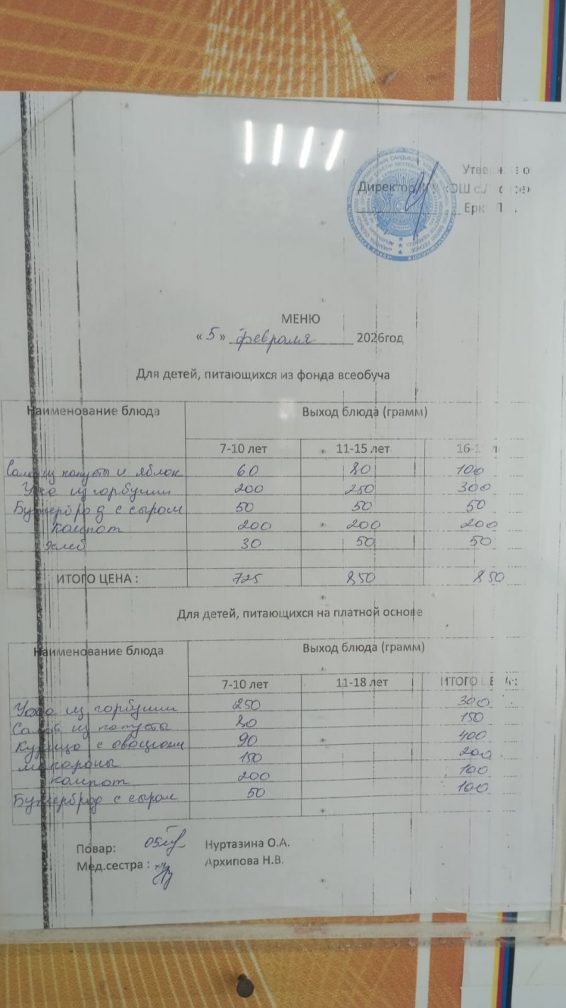 Директор КГУ «ОШ с.
Ерк
МЕНЮ
«5» февраля 2026год
Для детей, питающихся из фонда всеобуча
Наименование блюда Выход блюда (грамм)
7-10 лет 11-15 лет 16-
Салат из капусты и яблок 60 80 100
Уха из горбуши 200 250 300
Бутерброд с сыром 50 50 50
Компот 200 200 200
Хлеб 30 50 50
ИТОГО ЦЕНА : 725 850 850
Для детей, питающихся на платной основе
Наименование блюда Выход блюда (грамм)
7-10 лет 11-18 лет ИТОГО ЦЕНА:
Уха из горбуши 250 300
Салат из капусты 80 150
Курица с овощами 90 400
макароны 150 200
компот 200 100
Бутерброд с сыром 50 100
Повар: Нуртазина О.А.
Мед.сестра : Архипова Н.В.